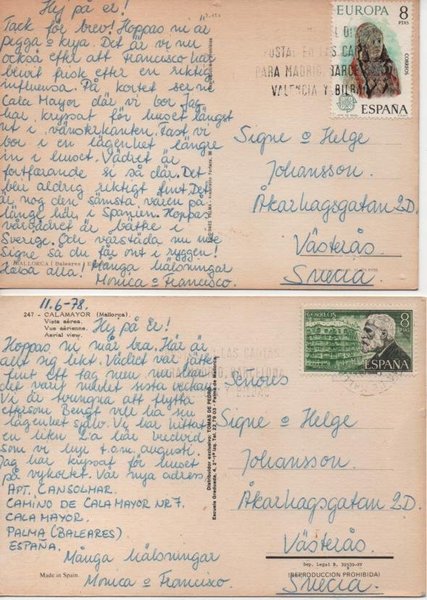 Hej på er!
Tack för brev! Hoppas ni är
pigga o krya. Det är vi nu
också efter att Francisco har
blivit frisk efter en riktig
influensa. På kortet ser ni
Cala Mayor där vi bor. Jag
har kryssat för huset längst
ut i vänsterkanten. Fast vi
bor i en lägenhet längre
in i huset. Vädret är
fortfarande si så där. Det
blir aldrig riktigt fint. Det
är nog den sämsta våren på
länge här i Spanien. Hoppas
vårvädret är bättre i
Sverige. Och vårstäda nu inte
Signe så du får ont i ryggen!
Hälsa alla! Många hälsningar
Monica o Francisco.
MALLORCA (Baleares)
EUROPA 8
PTAS
CORREOS
ESPAÑA
POSTAL EN LAS CARTAS
PARA MADRID, BARCELONA
VALENCIA Y BILBAO
Signe o Helge
Johansson.
Åkarhagsgatan 2D.
Västerås.
Suecia.
11.6-78.
247 - CALAMAYOR (Mallorca)
Vista aérea.
Vue aérienne.
Aerial view.
Hej på Er!
Hoppas ni mår bra. Här är
allt sig likt. Vädret var jätte-
fint ett tag men nu har
det varit mulet sista veckan.
Vi är tvungna att flytta
eftersom Bengt vill ha sin
lägenhet själv. Vi har hittat
en liten
vi hyr t.o.m. augusti.
Jag har kryssat för huset
på vykortet. Vår nya adress:
APT. CANSOLMAR.
CAMINO DE CALAMAYOR NR 7.
CALA MAYOR.
PALMA (BALEARES)
ESPAÑA.
Många hälsningar
Monica o Francisco.
Made in Spain
CORREOS 8
PTAS
ESPAÑA
LAS CARTAS
Señores
Signe o Helge
Johansson.
Åkarhagsgatan 2D.
Västerås
Suecia.
(REPRODUCCION PROHIBIDA)